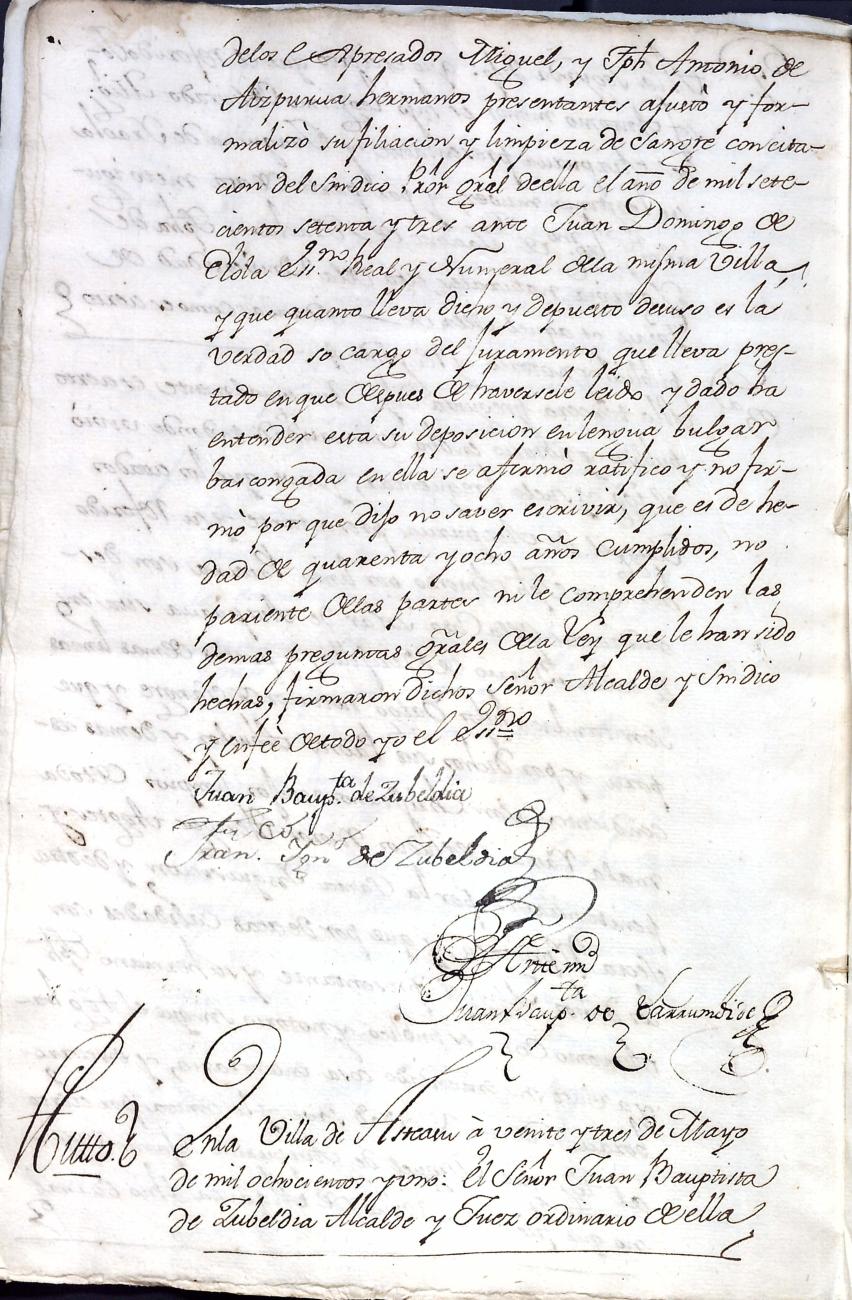 delos Expresados Miguel, y Jph Antonio de
Aizpurua hermanos presentantes ajustò y for-
malizò su filiacion y limpieza de Sangre con cita-
cion del Sindico Pror gral de ella el año de mil sete-
cientos setenta y tres ante Juan Domingo de
Elola Essno Real y Numeral de la misma Villa,
y que quanto lleva dicho y depuesto de uso es la
verdad so cargo del Juramento que lleva pres-
tado en que despues de haversele leido y dado ha
entender esta su deposicion en lengua bulgar
bascongada en ella se afirmò ratifico y no fir-
mò por que dijo no saver escrivir, que es de he-
dad de quarenta y ocho años cumplidos, no
pariente de las partes ni le comprehenden las
demas preguntas grales de la Ley que le han sido
hechas, firmaron dichos señor Alcalde y Sindico
y en feè de todo yo el Essno
Juan Baupta de Zubeldia
Fran. Ign de Zubeldia
Ante mi
Juan Baupta de Larrundide
Autto
En la Villa de Asteasu à veinte y tres de Mayo
de mil ochocientos y uno: El Señor Juan Bauptista
de Zubeldia Alcalde y Juez ordinario de ella